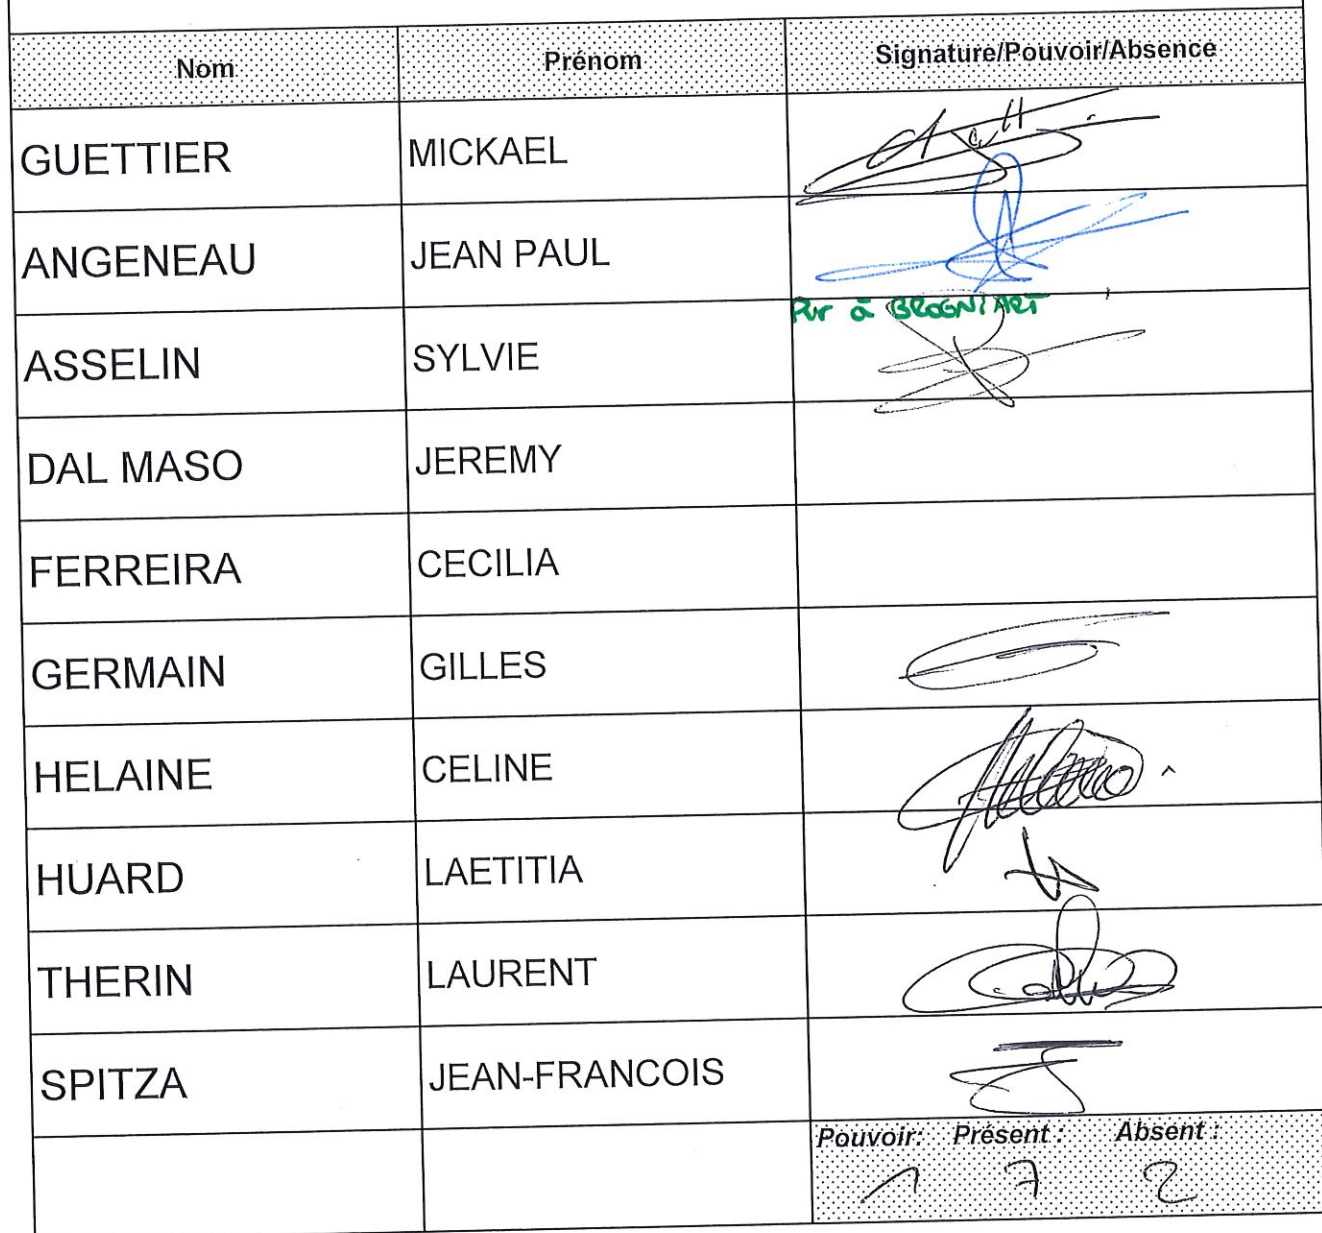 Nom Prénom Signature/Pouvoir/Absence
GUETTIER MICKAEL
ANGENEAU JEAN PAUL
Pvr à BROGNIART
ASSELIN SYLVIE
DAL MASO JEREMY
FERREIRA CECILIA
GERMAIN GILLES
HELAINE CELINE
HUARD LAETITIA
THERIN LAURENT
SPITZA JEAN-FRANCOIS
Pouvoir: Présent : Absent :
1 7 2